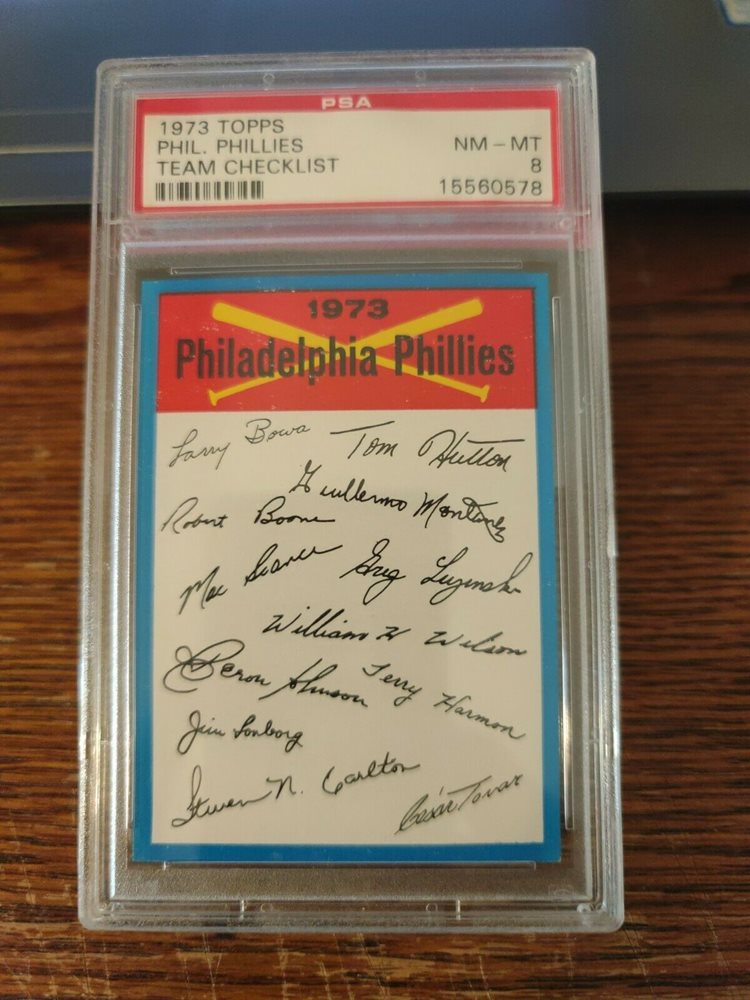 PSA
1973 TOPPS
PHIL. PHILLIES NM - MT
TEAM CHECKLIST 8
15560578
1973
Philadelphia Phillies
Larry Bowa Tom Hutton
Guillermo Montinez
Robert Boone
Mac Scarce Greg Luzinski
William H Wilson
Deron Johnson Terry Harmon
Jim Lonborg
Steven N. Carlton
César Tovar